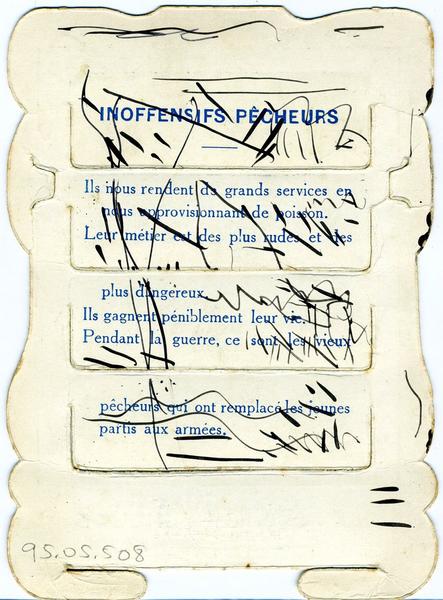 INOFFENSIFS PÊCHEURS
Ils nous rendent de grands services en
nous approvisionnant de poisson.
Leur métier est des plus rudes et des
plus dangereux.
Ils gagnent péniblement leur vie.
Pendant la guerre, ce sont les vieux
pêcheurs qui ont remplacé les jeunes
partis aux armées.
95.05.508